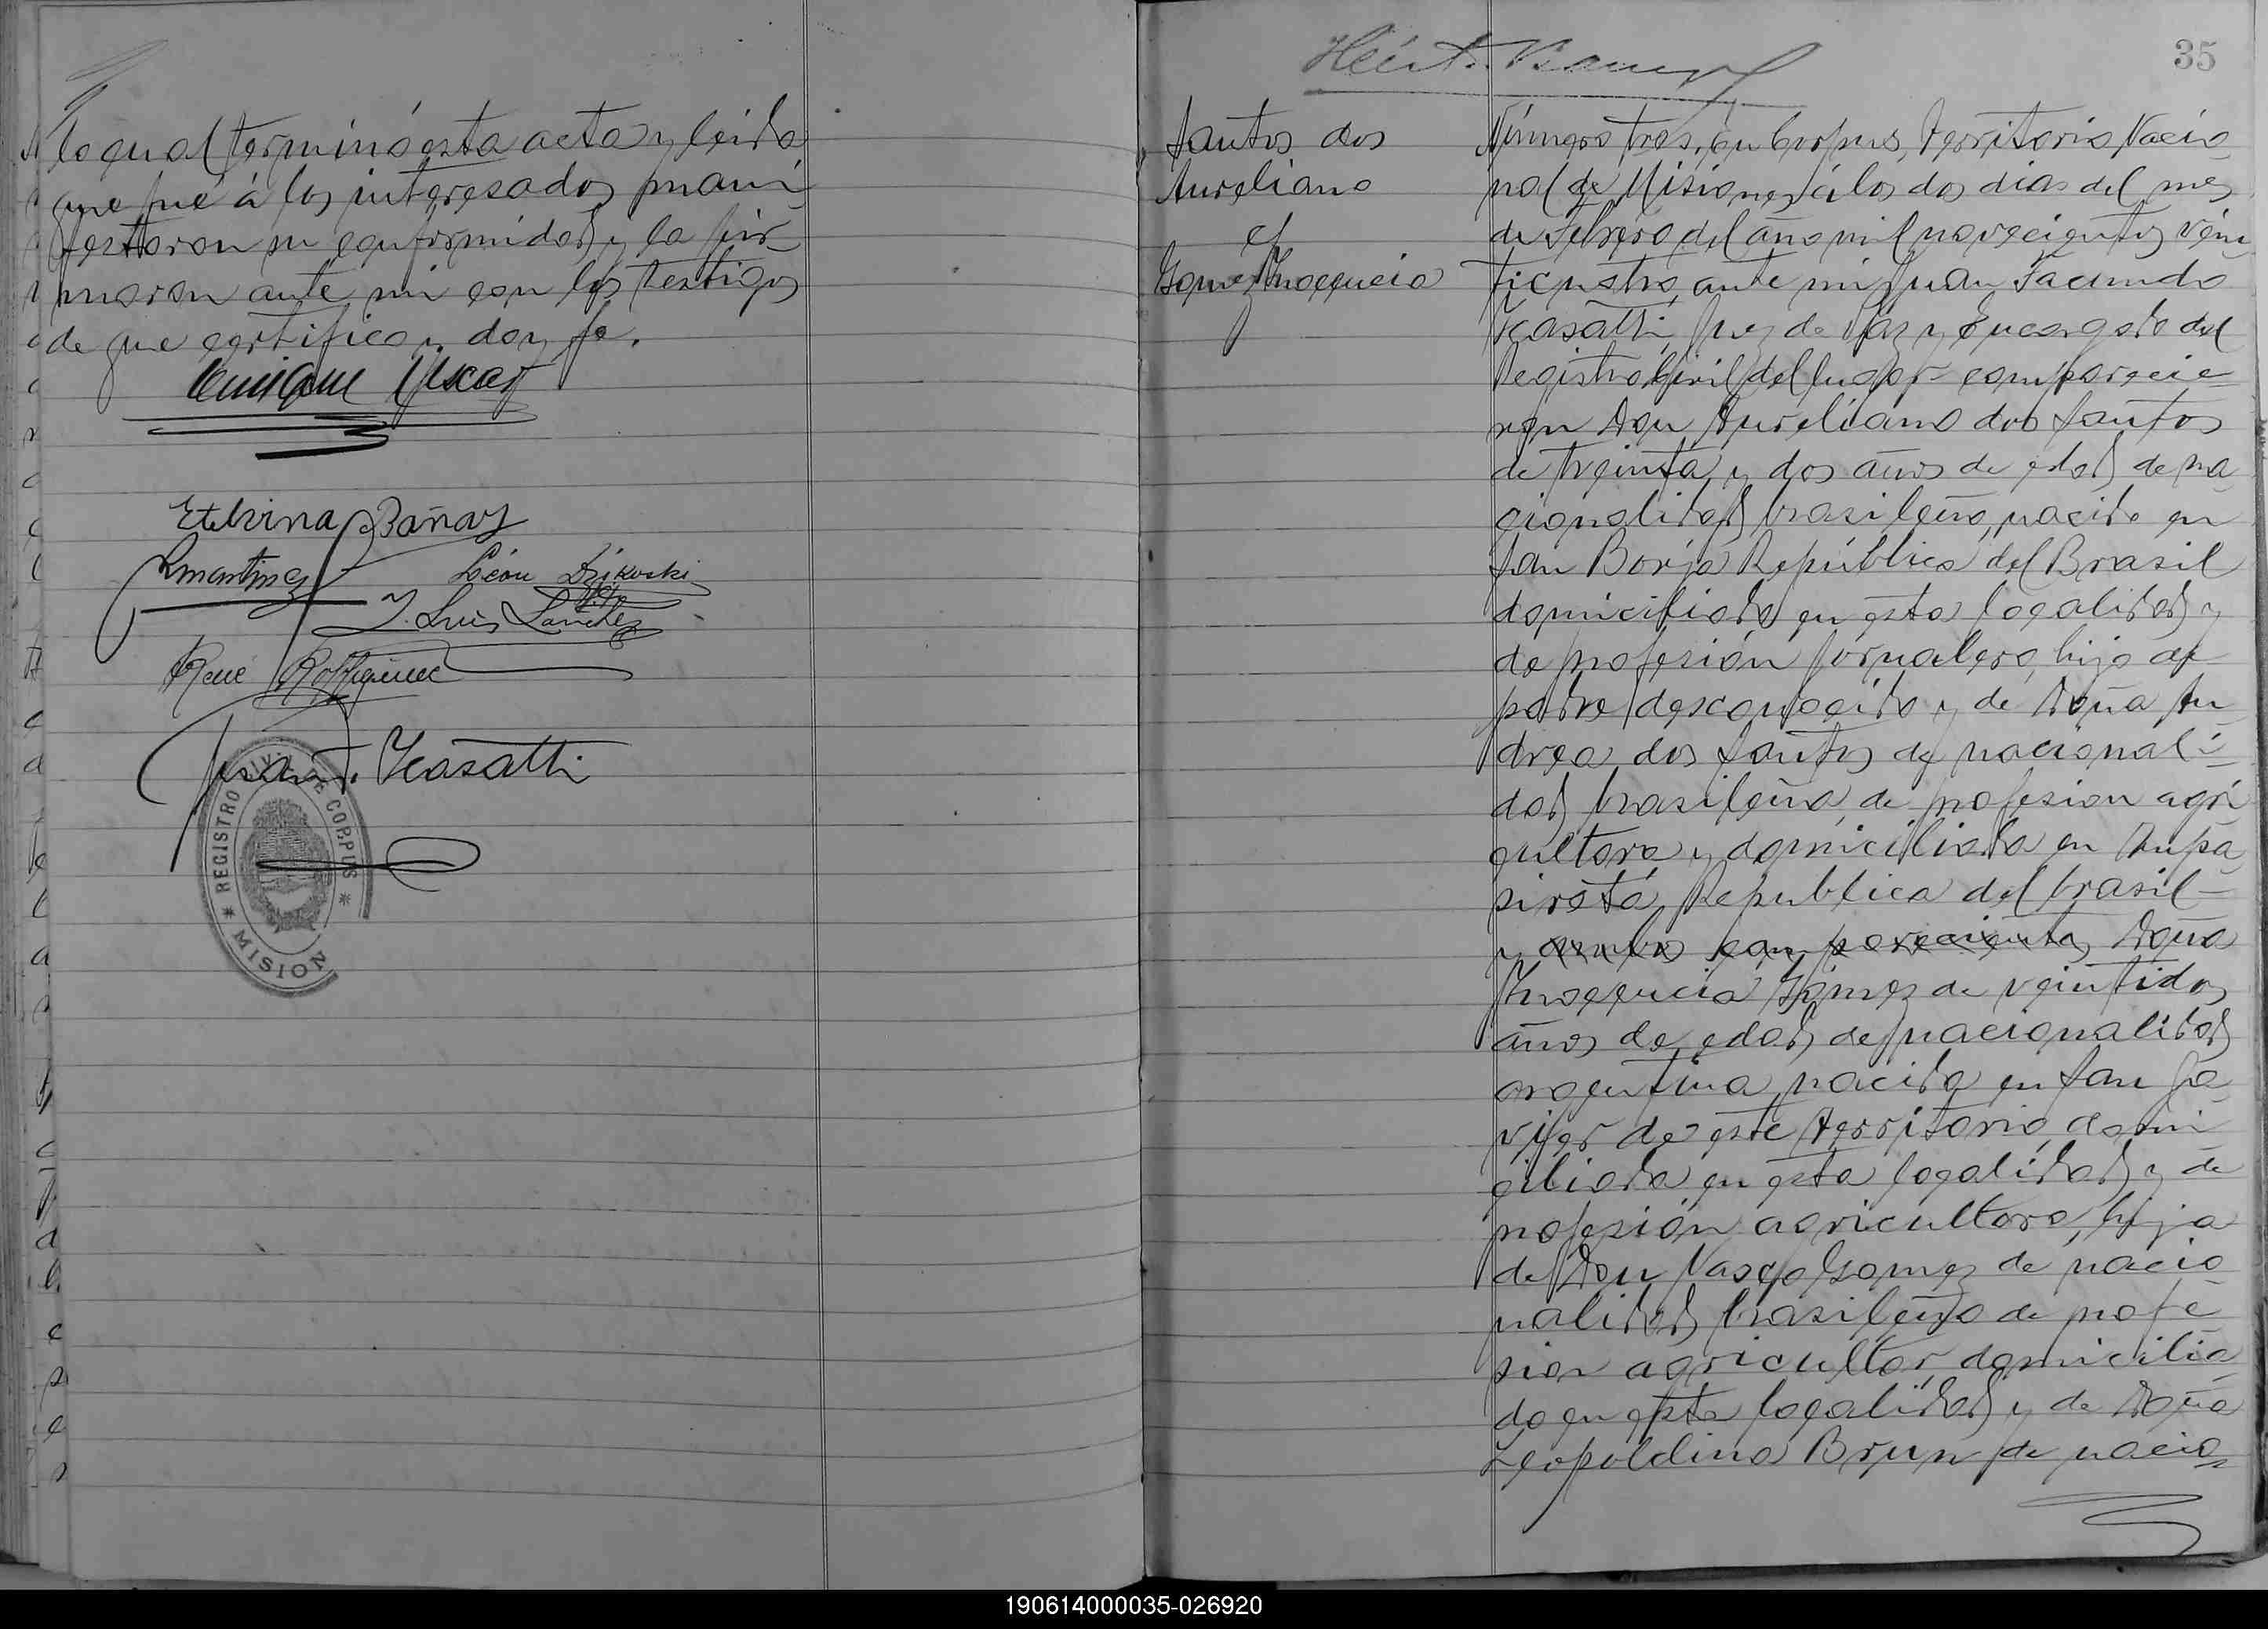 lo qual terminó esta acta y leida
que fué á los interesados mani
festaron su conformidad y la fir-
maron ante mi con los testigos
de que certifico y doy fe.
Etelvina Bañay
RMartinez
León Dzikoski
J. Luis Sanchez
René
Juan F. Casatti
REGISTRO CIVIL DE CORPUS
MISION
35
Santos dos
Aureliano
y
Gomez Inocencia
Número tres. En Corpus, Territorio Nacio
nal de Misiones, á los dos dias del mes
de Febrero del año mil novecientos vein
ticuatro, ante mi Juan Facundo
Casatti, Juez de Paz y Encargado del
Registro Civil del lugar comparecie-
ron Don Aureliano dos Santos
de treinta y dos años de edad, de na
cionalidad brasileña, nacido en
San Borja República del Brasil
domiciliado en esta localidad y
de profesión jornalero, hijo de
padre desconocido y de Doña An
drea dos Santos de nacionali-
dad brasileña, de profesion agri
cultora y domiciliada en
República del brasil-
y ambos comparecientes Doña
Inocencia Gómez de veintidos
años de edad, de nacionalidad
argentina, nacida en San Ja
vier de este Territorio, domi
ciliada en esta localidad y de
profesión agricultora, hija
de Don Vasco Gomez de nacio
nalidad brasileña de profe
sion agricultor, domicilia
do en esta localidad y de Doña
Leopoldina Brun de nacio
190614000035-026920